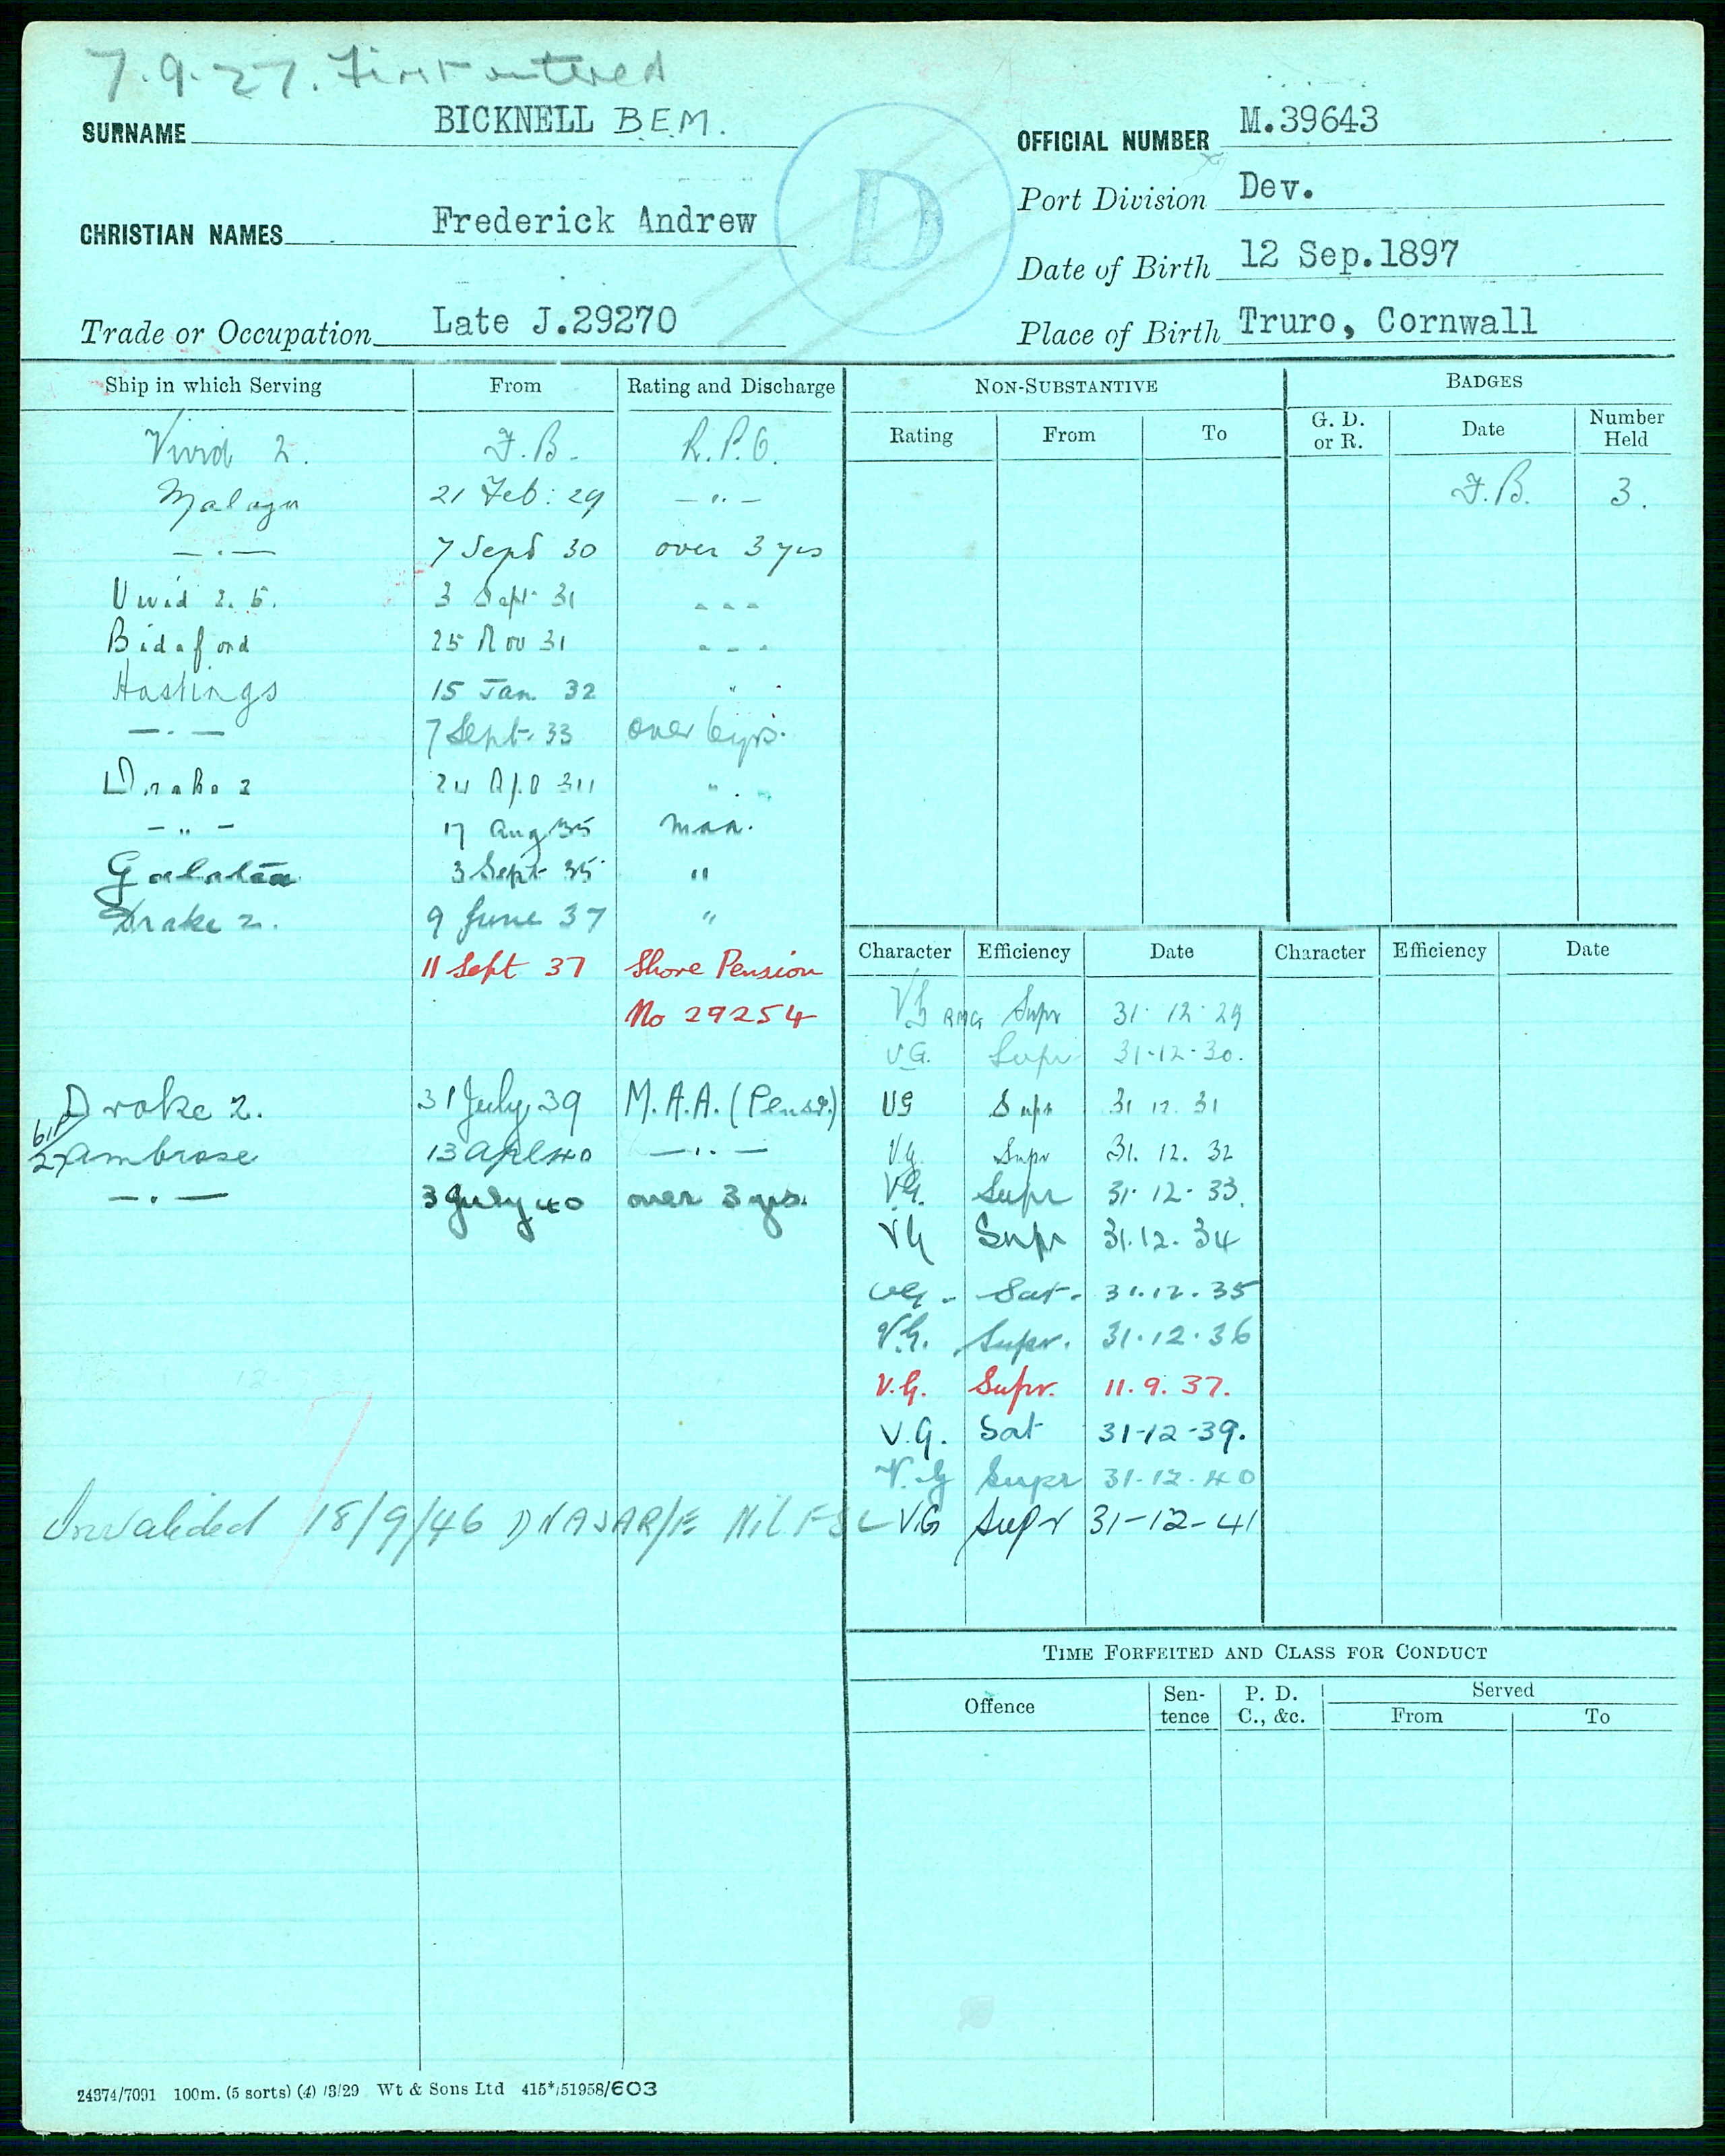 7.9.27. First entered
SURNAME BICKNELL B.E.M.
OFFICIAL NUMBER M.39643
Port Division Dev.
CHRISTIAN NAMES Frederick Andrew
D
Date of Birth 12 Sep.1897
Trade or Occupation Late J.29270
Place of Birth Truro, Cornwall
Ship in which Serving From Rating and Discharge
NON-SUBSTANTIVE
Rating From To
BADGES
G. D. or R. Date Number Held
F.B. 3.
Vivid 2. F.B. R.P.O.
Malaya 21 Feb: 29 — " —
— " — 7 Sept 30 over 3 yrs
Vivid 2. 5. 3 Sept 31 " " "
Bideford 25 Nov 31 " " "
Hastings 15 Jan 32 " "
— " — 7 Sept. 33 over 6 yrs.
Drake 2 24 Apl 34 " "
— " — 17 Aug 35 Maa.
Galatea 3 Sept 35 "
Drake 2. 9 June 37 "
11 Sept 37 Shore Pension
No 29254
Drake 2. 31 July 39 M.A.A. (Pensr.)
Ambrose 13 Apl 40 — " —
— " — 3 July 40 over 3 yrs.
Invalided 18/9/46 DNASAR/E Nil FSL
Character Efficiency Date Character Efficiency Date
VG RMG Supr 31.12.29
V.G. Supr 31-12-30.
VG Supr 31 12. 31
V.G. Supr 31. 12. 32
V.G. Supr 31.12.33.
VG Supr 31.12.34
VG. Sat. 31.12.35
V.G. Supr. 31.12.36
V.G. Supr. 11.9.37.
V.G. Sat 31-12-39.
V.G Supr 31-12-40
VG Supr 31-12-41
TIME FORFEITED AND CLASS FOR CONDUCT
Offence Sentence P. D. C., &c. Served From To
24374/7091 100m. (5 sorts) (4) /3/29 Wt & Sons Ltd 415*/51958/603